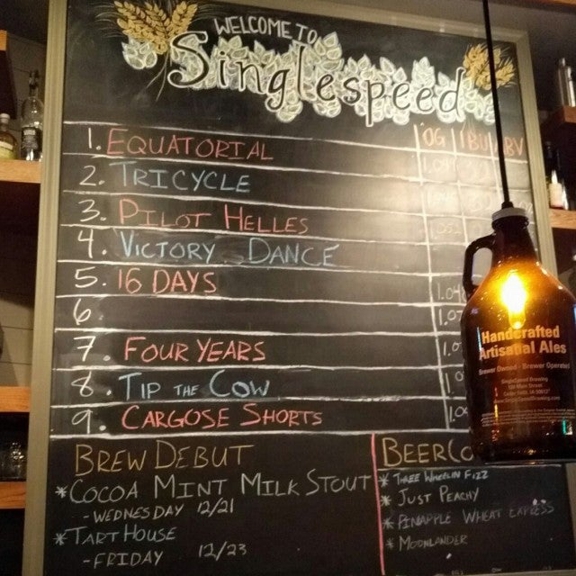 WELCOME TO
Singlespeed
OG IBU ABV
1. EQUATORIAL
2. TRICYCLE
3. PILOT HELLES
4. VICTORY DANCE
5. 16 DAYS
6.
7. FOUR YEARS
8. TIP THE COW
9. CARGOSE SHORTS
BREW DEBUT
*COCOA MINT MILK STOUT
-WEDNESDAY 12/21
*TART HOUSE
-FRIDAY 12/23
BEER CO
* THREE WHEELIN FIZZ
* JUST PEACHY
* PINAPPLE WHEAT EXPRESS
* MOONLANDER
Handcrafted
Artisanal Ales
Brewer Owned - Brewer Operated